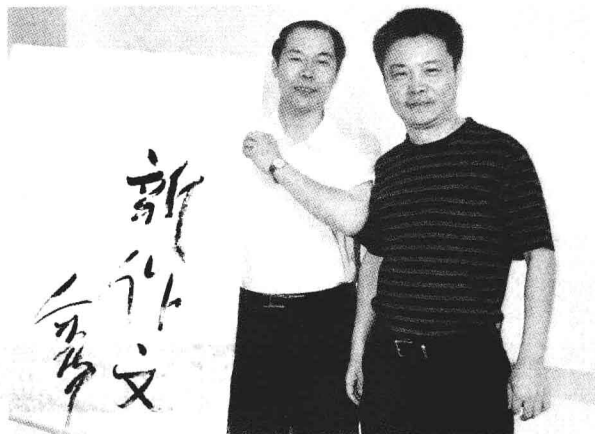 新作文